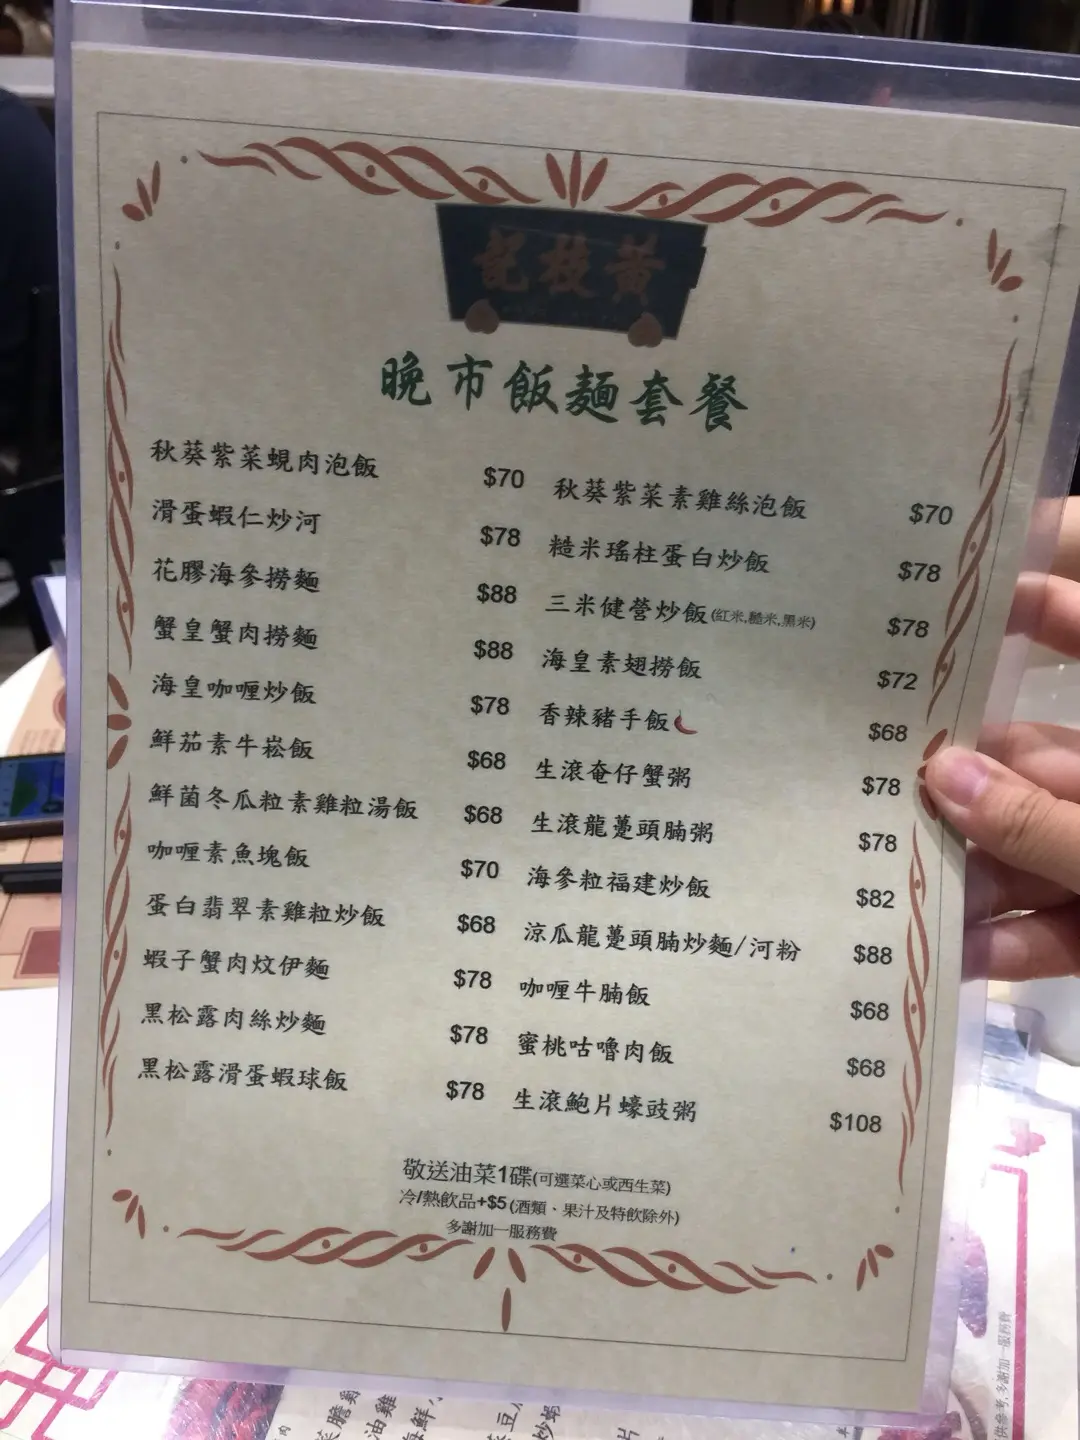 黃枝記
晚市飯麵套餐
秋葵紫菜蜆肉泡飯 $70
滑蛋蝦仁炒河 $78
花膠海參撈麵 $88
蟹皇蟹肉撈麵 $88
海皇咖喱炒飯 $78
鮮茄素牛崧飯 $68
鮮菌冬瓜粒素雞粒湯飯 $68
咖喱素魚塊飯 $70
蛋白翡翠素雞粒炒飯 $68
蝦子蟹肉炆伊麵 $78
黑松露肉絲炒麵 $78
黑松露滑蛋蝦球飯 $78
秋葵紫菜素雞絲泡飯 $70
糙米瑤柱蛋白炒飯 $78
三米健營炒飯(紅米,糙米,黑米) $78
海皇素翅撈飯 $72
香辣豬手飯 $68
生滾奄仔蟹粥 $78
生滾龍躉頭腩粥 $78
海參粒福建炒飯 $82
涼瓜龍躉頭腩炒麵/河粉 $88
咖喱牛腩飯 $68
蜜桃咕嚕肉飯 $68
生滾鮑片蠔豉粥 $108
敬送油菜1碟(可選菜心或西生菜)
冷/熱飲品+$5(酒類、果汁及特飲除外)
多謝加一服務費
供參考,多謝加一服務費